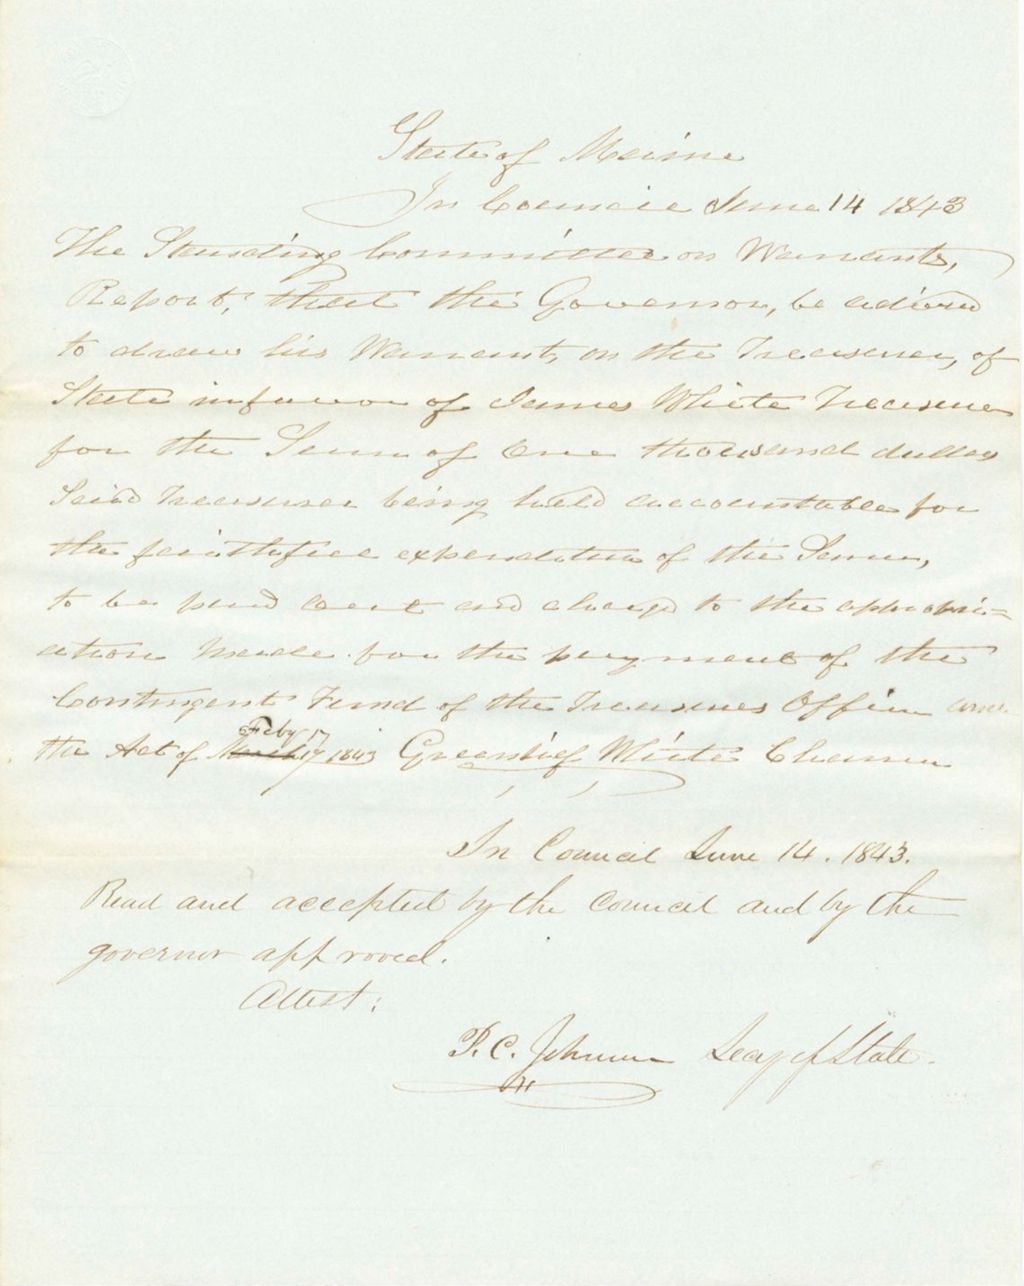 State of Maine
In Council June 14 1843
The Standing Committee on Warrants,
Report, that the Governor, be advised
to draw his Warrant, on the Treasurer, of
State in favor of James White Treasurer
for the Sum of One thousand dollars
Said Treasurer being held accountable for
the faithful expenditure of the Same,
to be paid out and charged to the appropri=
ation made for the payment of the
Contingent Fund of the Treasurers Office
the Act of Feby 17 March 17 1843 Greenlief White Chairman
In Council June 14. 1843.
Read and accepted by the Council and by the
governor approved.
Attest:
P. C. Johnson Secy of State.